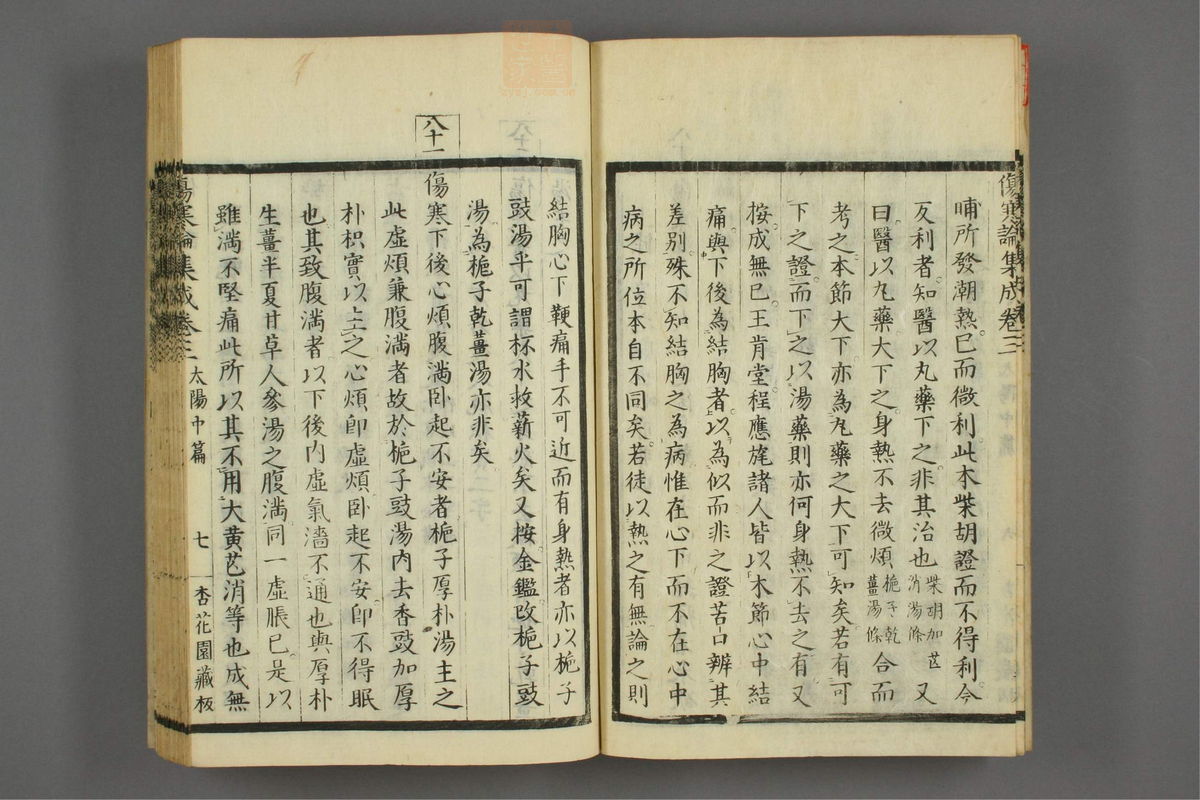 傷寒論集成卷三
晡所發潮熱已而微利此本柴胡證而不得利今
反利者知醫以丸藥下之非其治也柴胡加芒消湯條又
曰醫以丸藥大下之身熱不去微煩梔子乾薑湯條合而
考之本節大下亦為丸藥之大下可知矣若有可
下之證而下之以湯藥則亦何身熱不去之有又
按成無已王肯堂程應旄諸人皆以本節心中結
痛與下後為結胸者以為似而非之證苦口辨其
差別殊不知結胸之為病惟在心下而不在心中
病之所位本自不同矣若徒以熱之有無論之則
結胸心下鞕痛手不可近而有身熱者亦以梔子
豉湯乎可謂杯水救薪火矣又按金鑑改梔子豉
湯為梔子乾薑湯亦非矣
八十一
傷寒下後心煩腹滿臥起不安者梔子厚朴湯主之
此虛煩兼腹滿者故於梔子豉湯內去香豉加厚
朴枳實以主之心煩卽虛煩臥起不安卽不得眠
也其致腹滿者以下後內虛氣濇不通也與厚朴
生薑半夏甘草人參湯之腹滿同一虛脹已是以
雖滿不堅痛此所以其不用大黃芒消等也成無
傷寒論集成卷三 太陽中篇 七 杏花園藏板